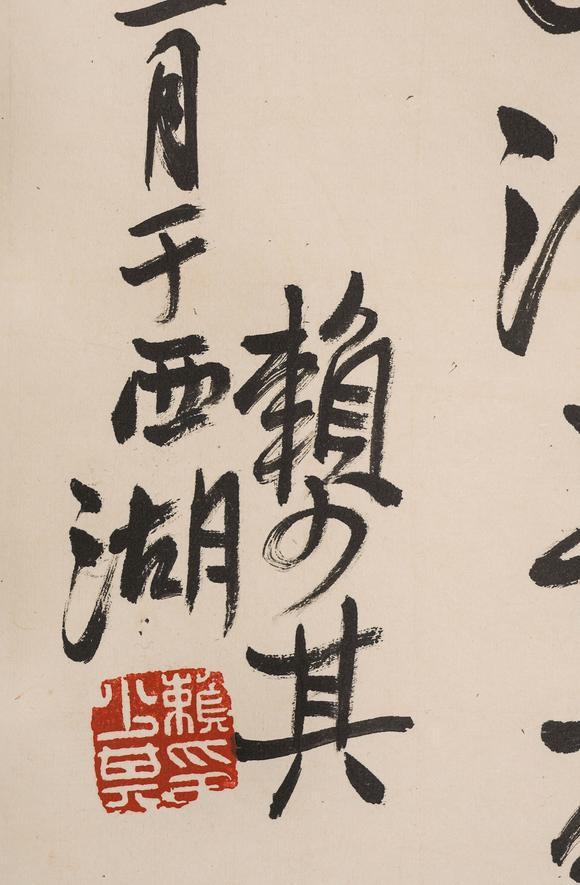 賴少其
月于西湖
賴印
少其